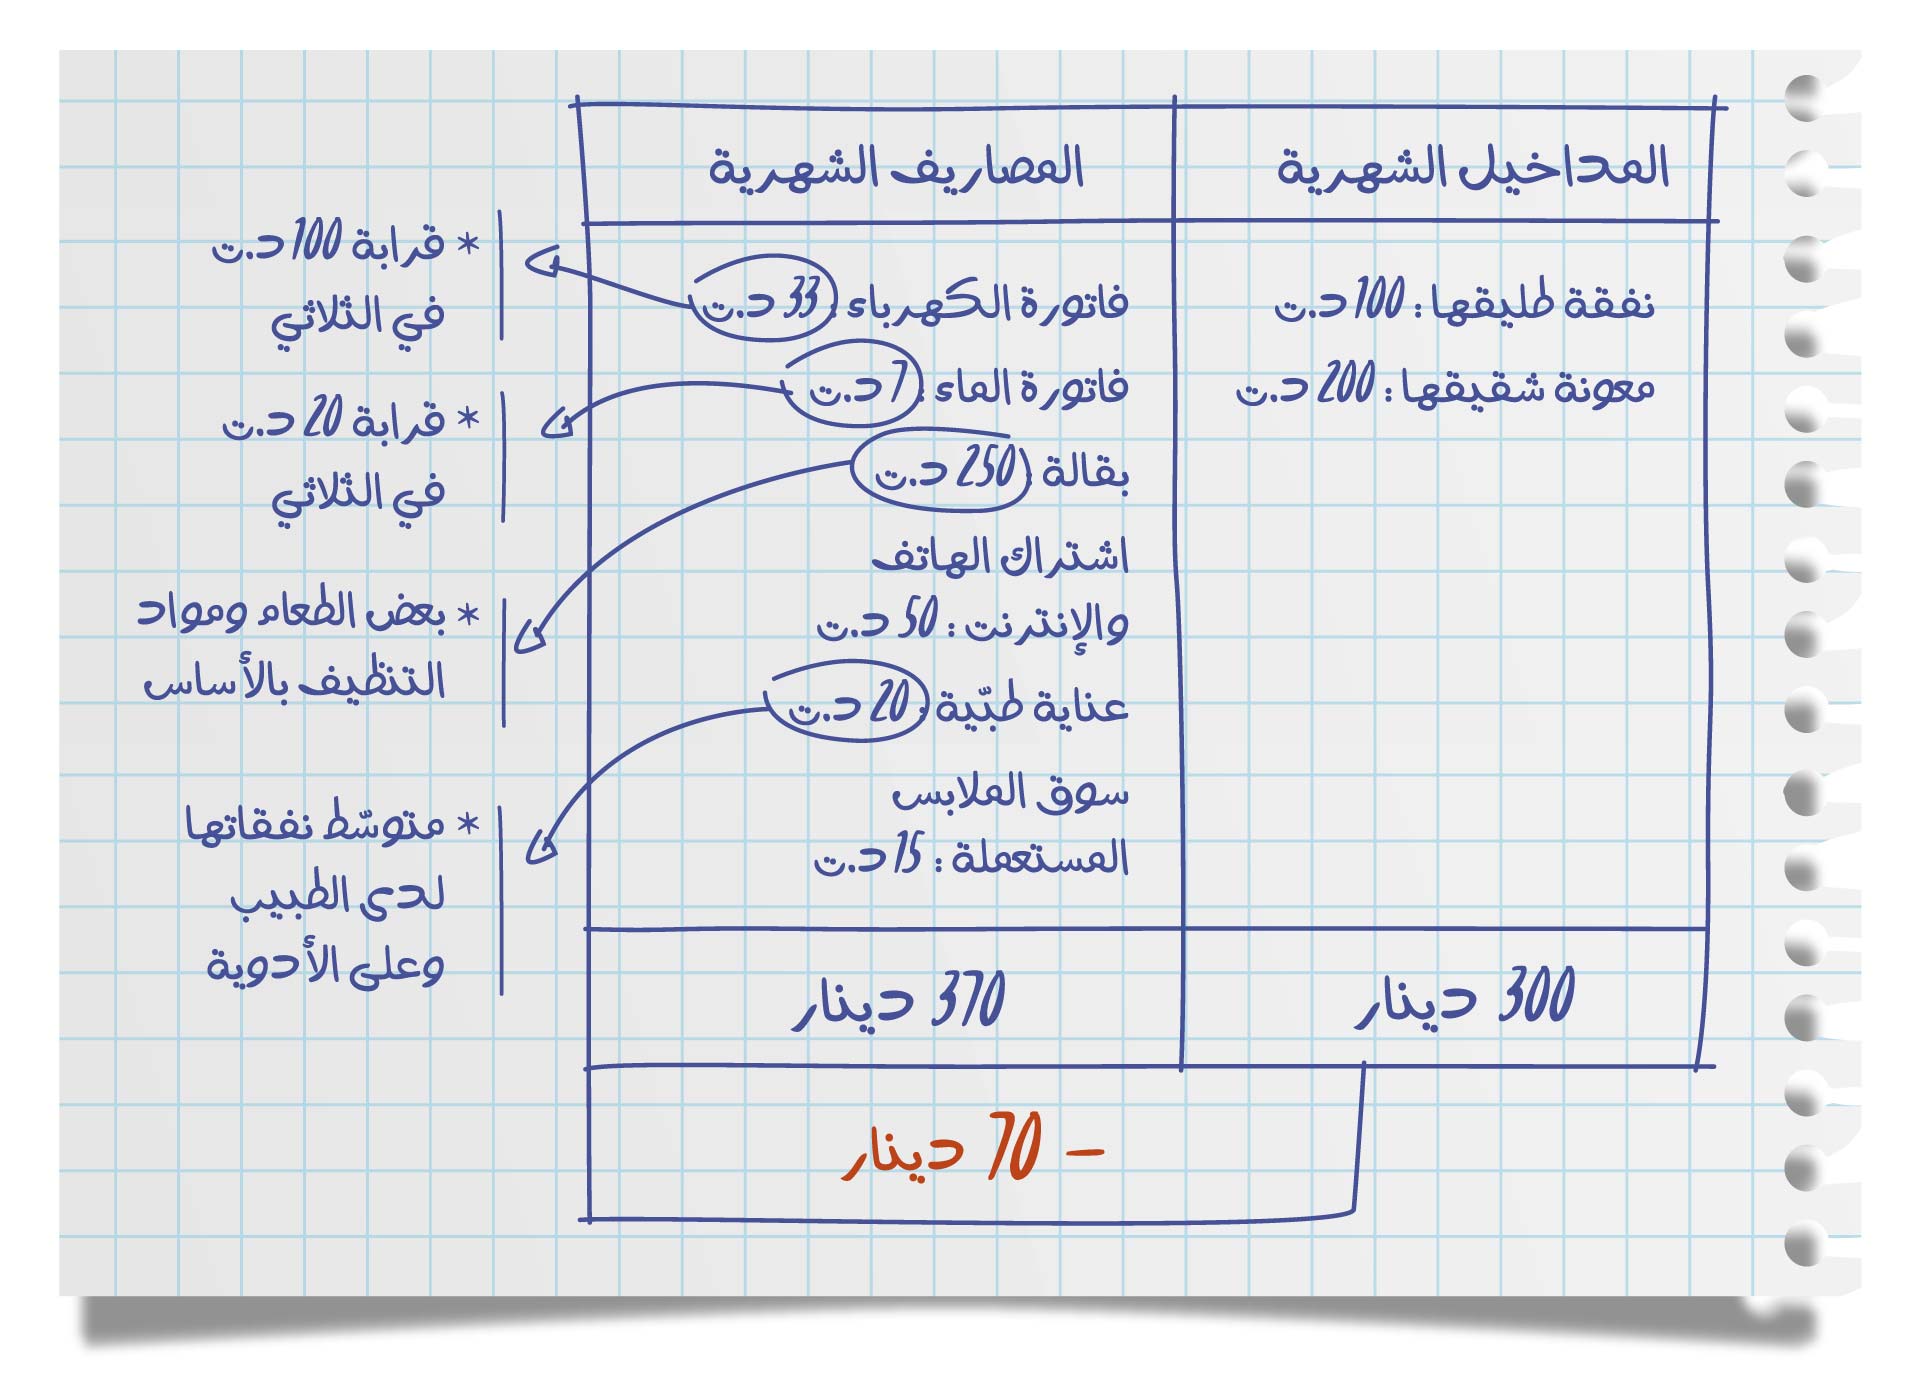 المداخيل الشهرية
نفقة طليقها : 100 د.ت
معونة شقيقها : 200 د.ت
300 دينار
المصاريف الشهرية
فاتورة الكهرباء : 33 د.ت
فاتورة الماء : 7 د.ت
بقالة : 250 د.ت
اشتراك الهاتف
والإنترنت : 50 د.ت
عناية طبّية : 20 د.ت
سوق الملابس
المستعملة : 15 د.ت
370 دينار
- 70 دينار
* قرابة 100 د.ت
في الثلاثي
* قرابة 20 د.ت
في الثلاثي
* بعض الطعام ومواد
التنظيف بالأساس
* متوسّط نفقاتها
لدى الطبيب
وعلى الأدوية